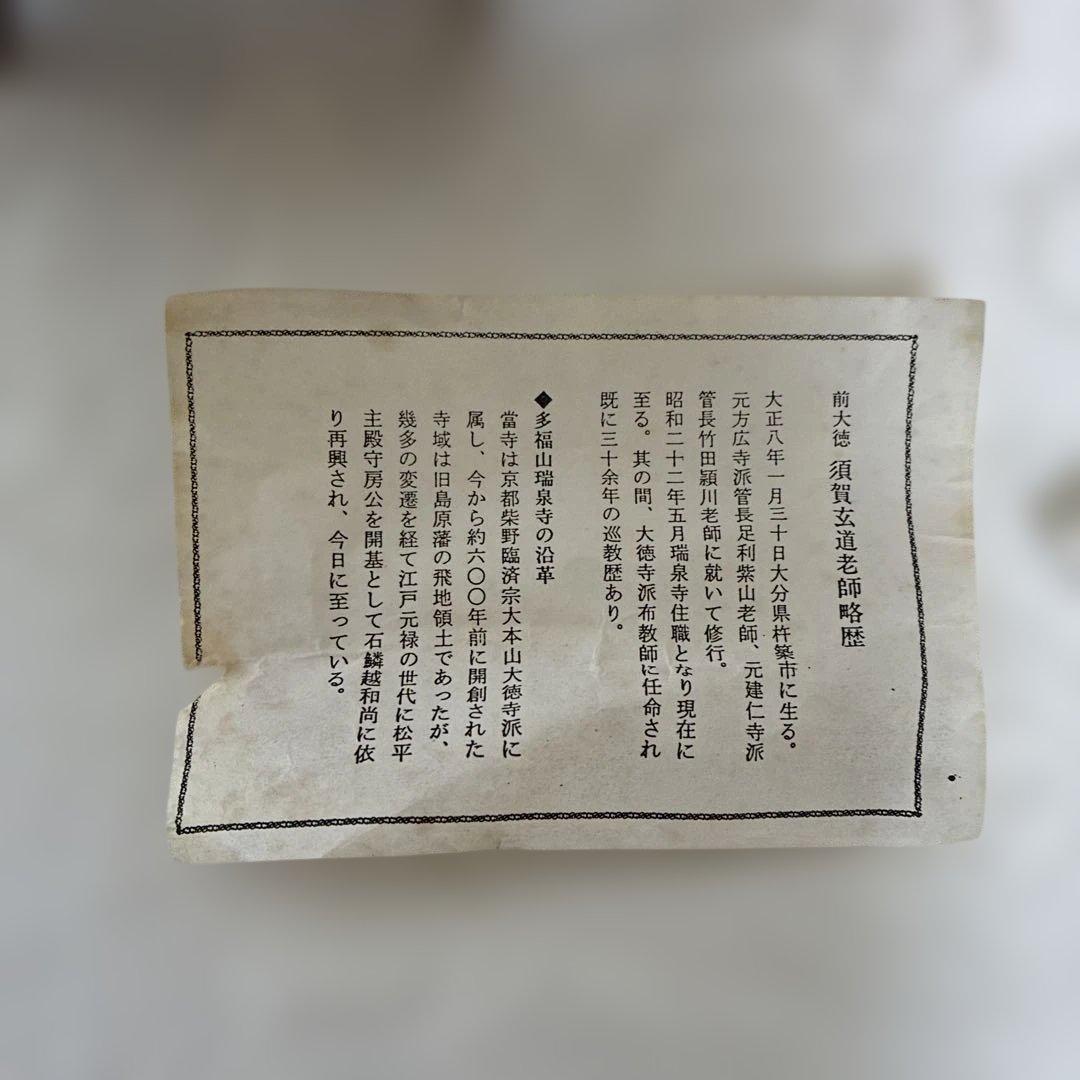 前大徳 須賀玄道老師略歴
大正八年一月三十日大分県杵築市に生る。
元方広寺派管長足利紫山老師、元建仁寺派
管長竹田頴川老師に就いて修行。
昭和二十二年五月瑞泉寺住職となり現在に
至る。其の間、大徳寺派布教師に任命され
既に三十余年の巡教歴あり。
◆多福山瑞泉寺の沿革
當寺は京都柴野臨済宗大本山大徳寺派に
属し、今から約六〇〇年前に開創された
寺域は旧島原藩の飛地領土であったが、
幾多の変遷を経て江戸元禄の世代に松平
主殿守房公を開基として石鱗越和尚に依
り再興され、今日に至っている。